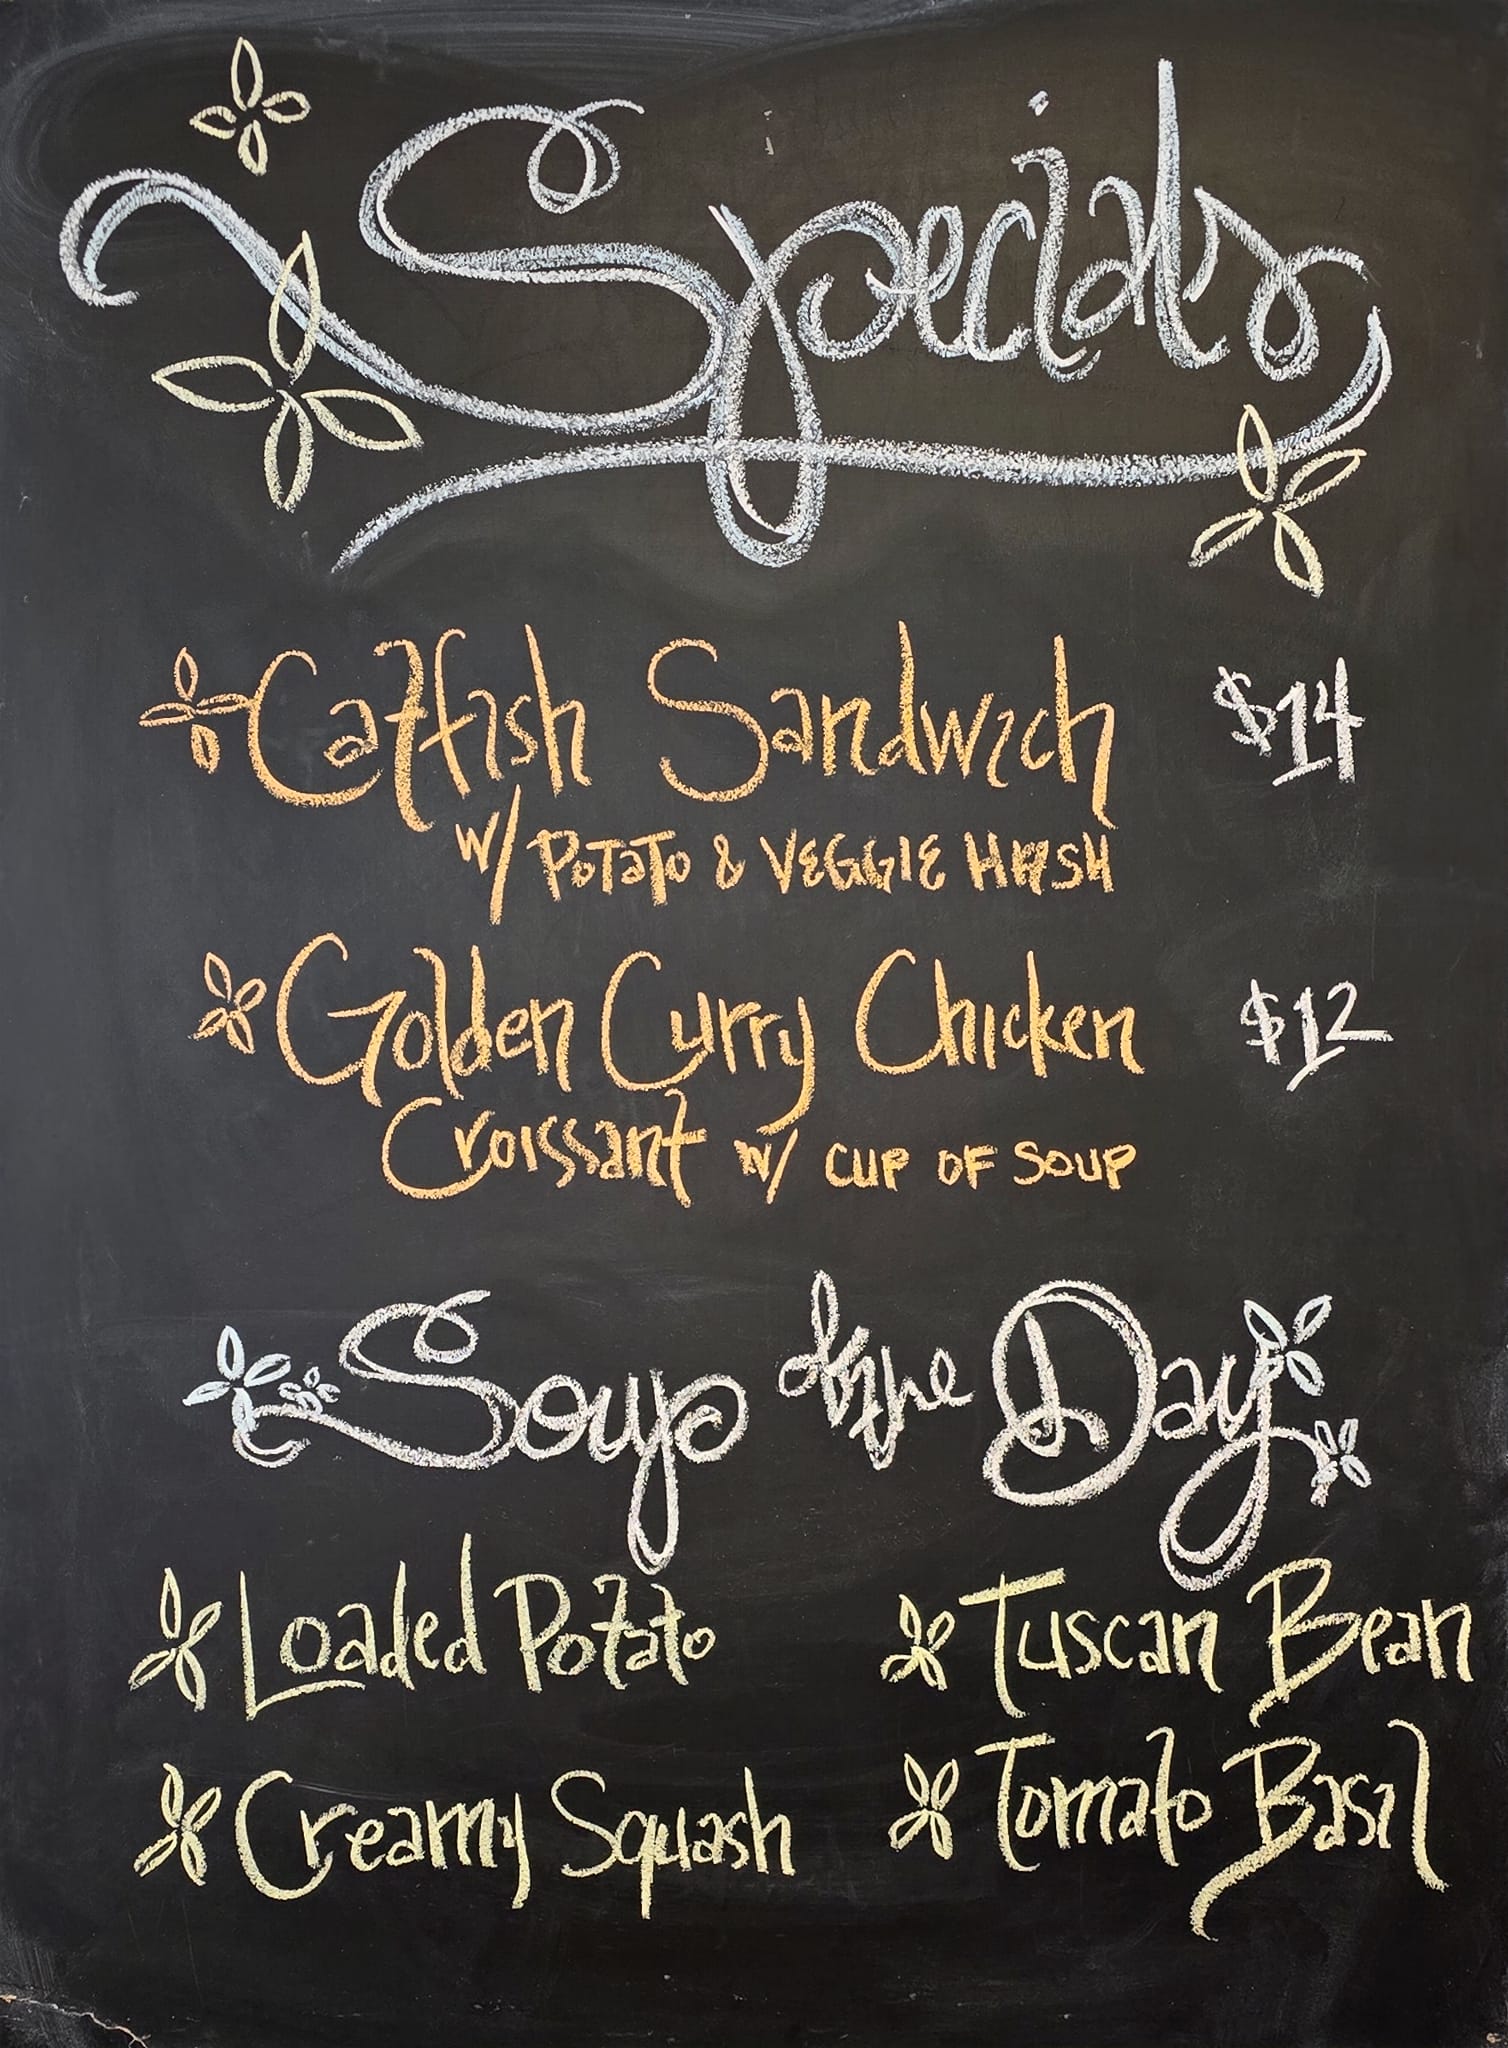 Specials
Catfish Sandwich $14
w/ POTATO & VEGGIE HASH
Golden Curry Chicken $12
Croissant w/ CUP OF SOUP
Soup of the Day
Loaded Potato
Tuscan Bean
Creamy Squash
Tomato Basil